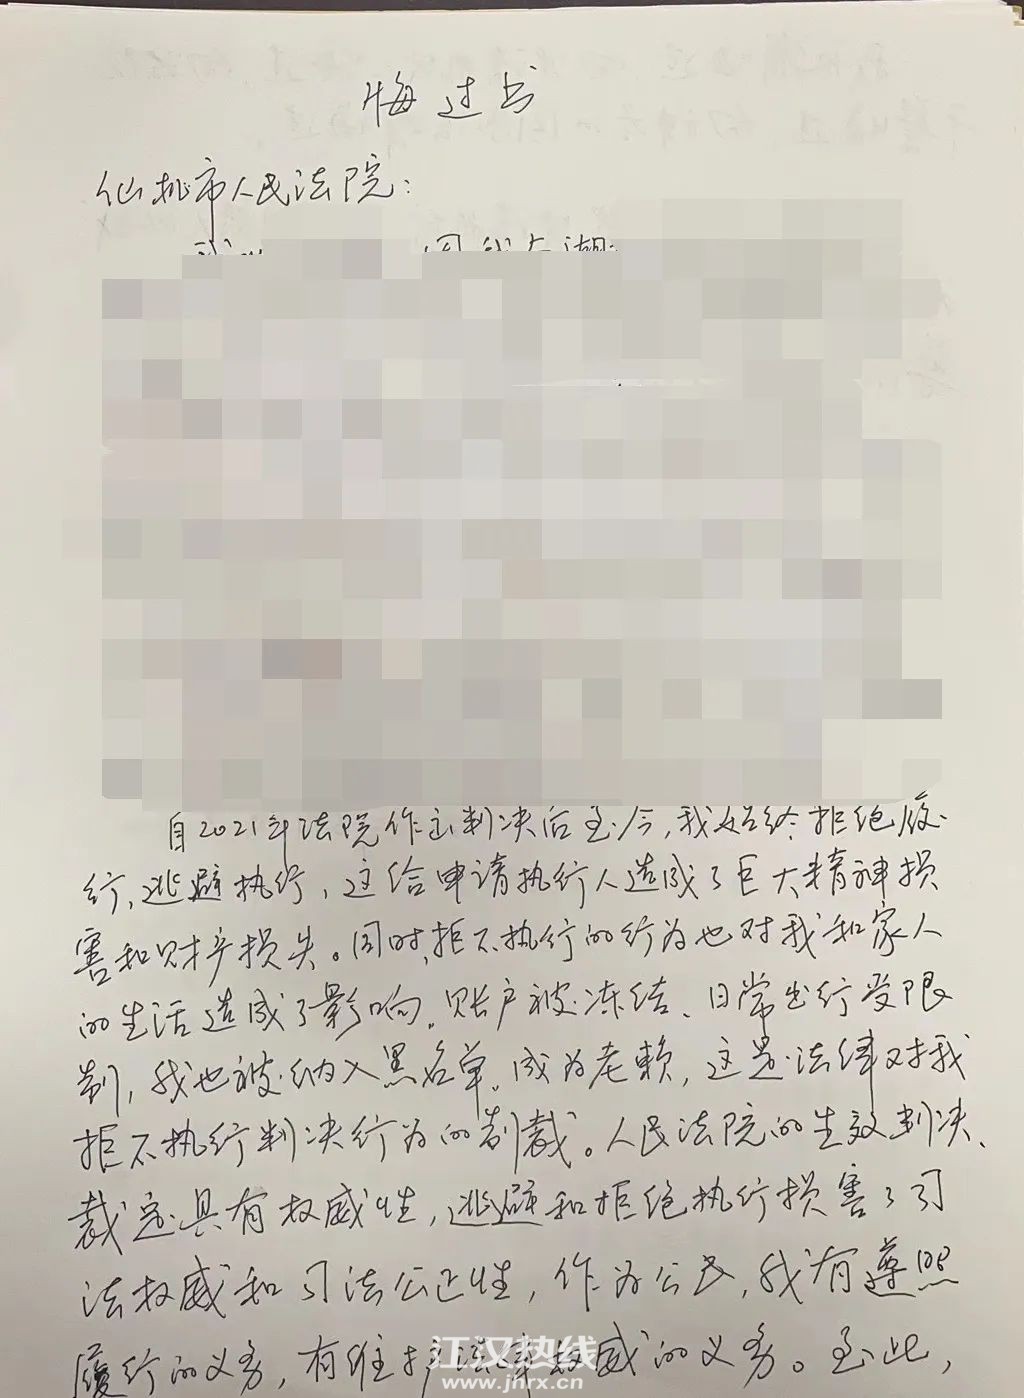 悔过书
仙桃市人民法院：
自2021年法院作出判决后至今，我始终拒绝履
行，逃避执行，这给申请执行人造成了巨大精神损
害和财产损失。同时，拒不执行的行为也对我和家人
的生活造成了影响。账户被冻结、日常出行受限
制，我也被纳入黑名单，成为老赖，这是法律对我
拒不执行判决行为的制裁。人民法院的生效判决、
裁定具有权威性，逃避和拒绝执行损害了司
法权威和司法公正性，作为公民，我有遵照
履行的义务，有维护法律权威的义务。至此，
江汉热线
www.jhrx.cn